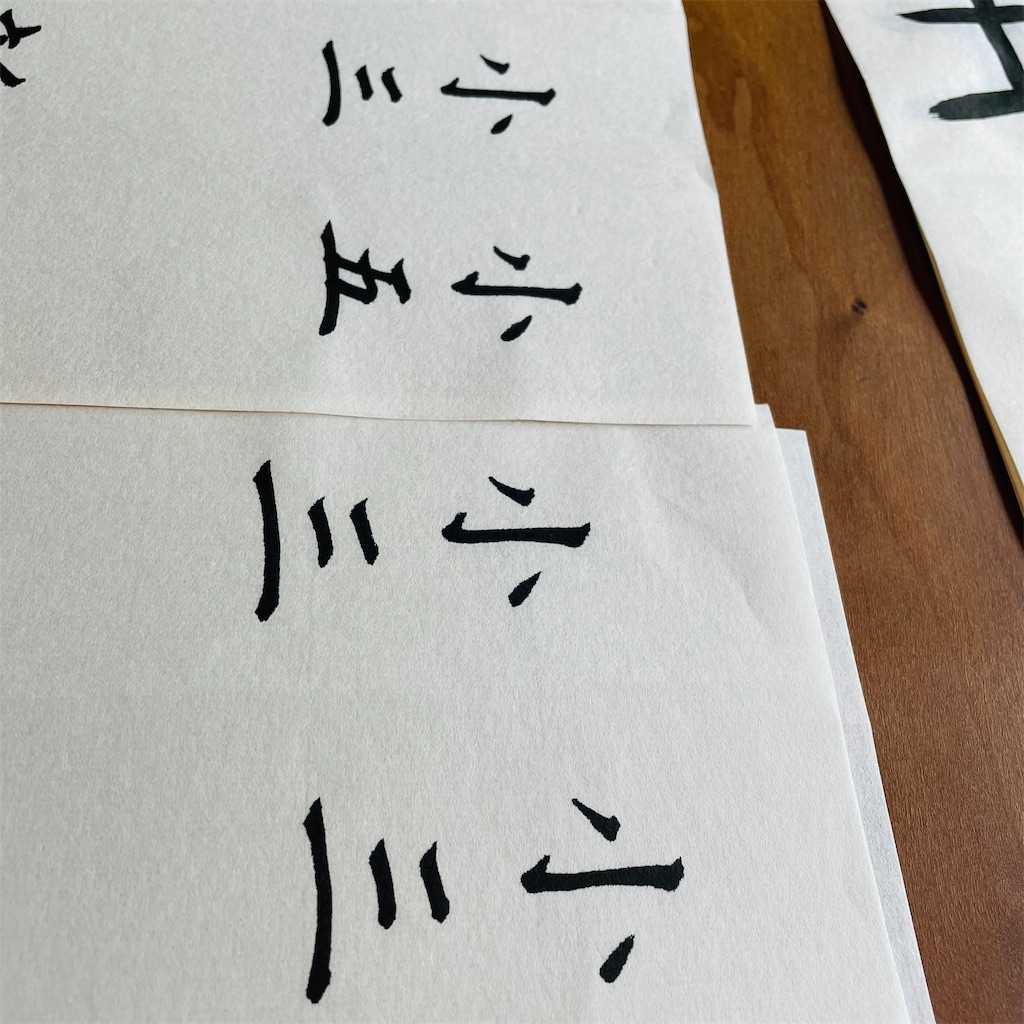 小三
小三
小五
小三